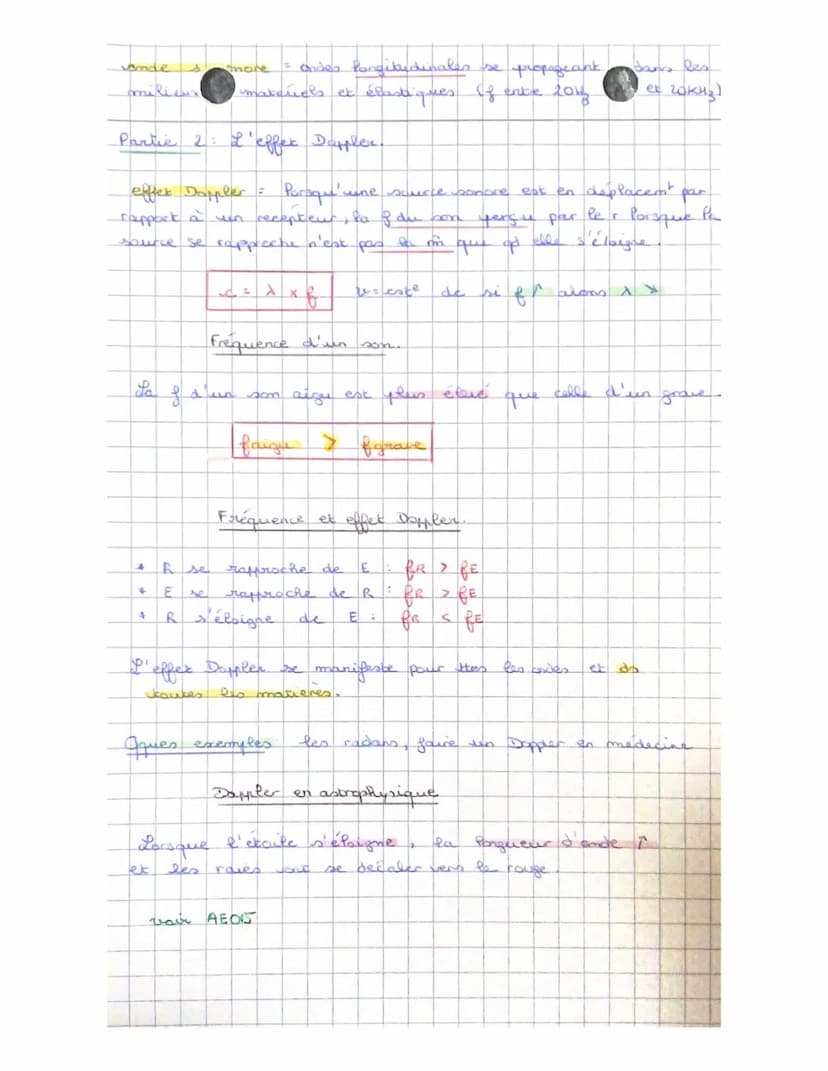 onde s more = ondes longitudinales se propageant dans les
milieux matériels et élastiques (f entre 20Hz et 20KHz)
Partie 2 : L'effet Doppler.
effet Doppler = lorsqu'une source sonore est en déplacemt par
rapport à un recepteur, la f du son perçu par le r lorsque la
source se rapproche n'est pas la m̂ que qd elle s'éloigne.
c = λ × f v = cste dc si f ↑ alors λ ↘
Fréquence d'un son.
La f d'un son aigu est plus élevé que celle d'un grave.
faigu > fgrave
Fréquence et effet Doppler.
* R se rapproche de E : fR > fE
* E se rapproche de R : fR > fE
* R s'éloigne de E : fR < fE
L'effet Doppler se manifeste pour ttes les ondes et ds
toutes les matières.
Qques exemples les radars, faire un Doppler en médecine
Doppler en astrophysique
Lorsque l'étoile s'éloigne, la longueur d'onde ↑
et les raies vont se décaler vers le rouge.
voir AE05